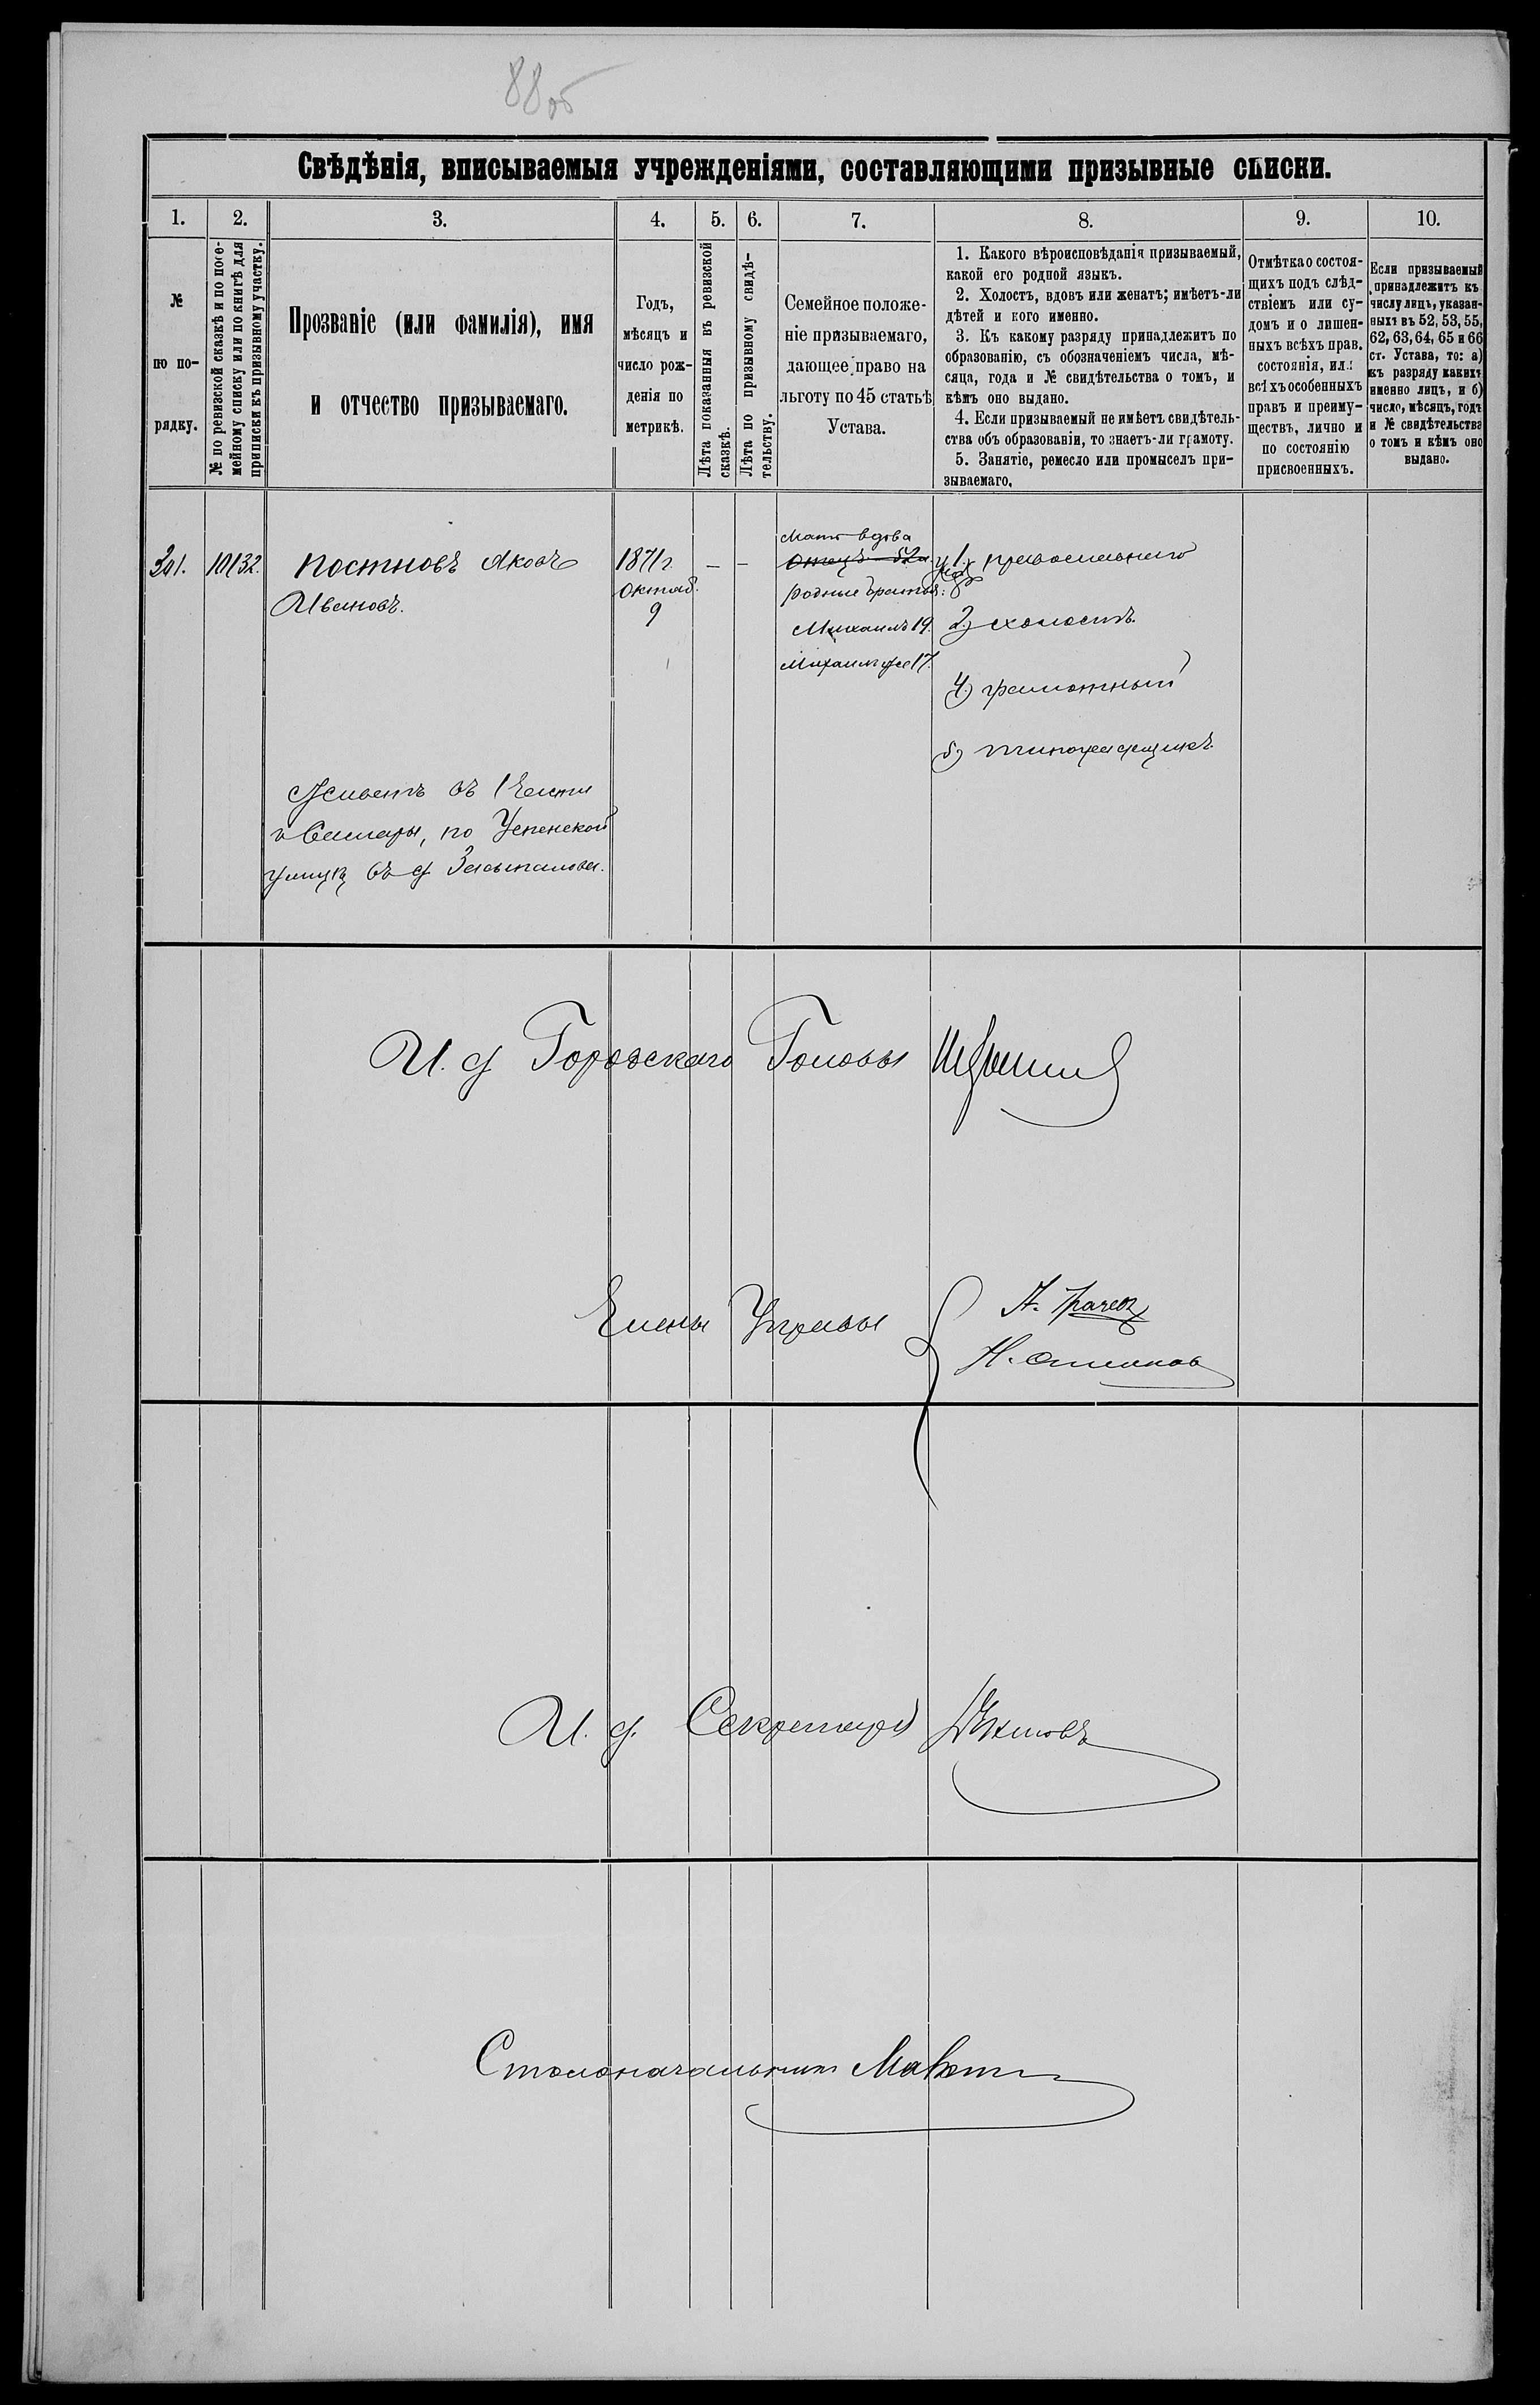 88 об
Свѣдѣнія, вписываемыя учрежденіями, составляющими призывные списки.
1. 2. 3. 4. 5. 6. 7. 8. 9. 10.
№
по по-
рядку.
№ по ревизской сказкѣ и по посе-
мейному списку или по книгѣ для
приписки къ призывному участку.
Прозваніе (или фамилія), имя
и отчество призываемаго.
Годъ,
мѣсяцъ и
число рож-
денія по
метрикѣ.
Лѣта показанныя въ ревизской
сказкѣ.
Лѣта по призывному свидѣ-
тельству.
Семейное положе-
ніе призываемаго,
дающее право на
льготу по 45 статьѣ
Устава.
1. Какого вѣроисповѣданія призываемый,
какой его родной языкъ.
2. Холостъ, вдовъ или женатъ; имѣетъ-ли
дѣтей и кого именно.
3. Къ какому разряду принадлежитъ по
образованію, съ обозначеніемъ числа, мѣ-
сяца, года и № свидѣтельства о томъ, и
кѣмъ оно выдано.
4. Если призываемый не имѣетъ свидѣтель-
ства объ образованіи, то знаетъ-ли грамоту.
5. Занятіе, ремесло или промыселъ при-
зываемаго.
Отмѣтка о состоя-
щихъ подъ слѣд-
ствіемъ или су-
домъ и о лишен-
ныхъ всѣхъ прав.
состоянія, или
всѣхъ особенныхъ
правъ и преиму-
ществъ, лично и
по состоянію
присвоенныхъ.
Если призываемый
принадлежитъ къ
числу лицъ, указан-
ныхъ въ 52, 53, 55,
62, 63, 64, 65 и 66
ст. Устава, то: а)
къ разряду какихъ
именно лицъ, и б)
число, мѣсяцъ, годъ
и № свидѣтельства
о томъ и кѣмъ оно
выдано.
241. 10132. Постновъ Яковъ
Ивановъ.
1871 г.
Октяб.
9
— —
Мать вдова
Отецъ 52
родные братья:
Михаилъ 19.
Михаилъ же 17.
1) православнаго
2) холостъ.
4) грамотный
5)
Живетъ въ 1 части
г Самары, по Успенской
улицѣ въ д Засыпалова.
И. д Городскаго Головы
Члены Управы
И. д. Секретаря
Столоначальникъ